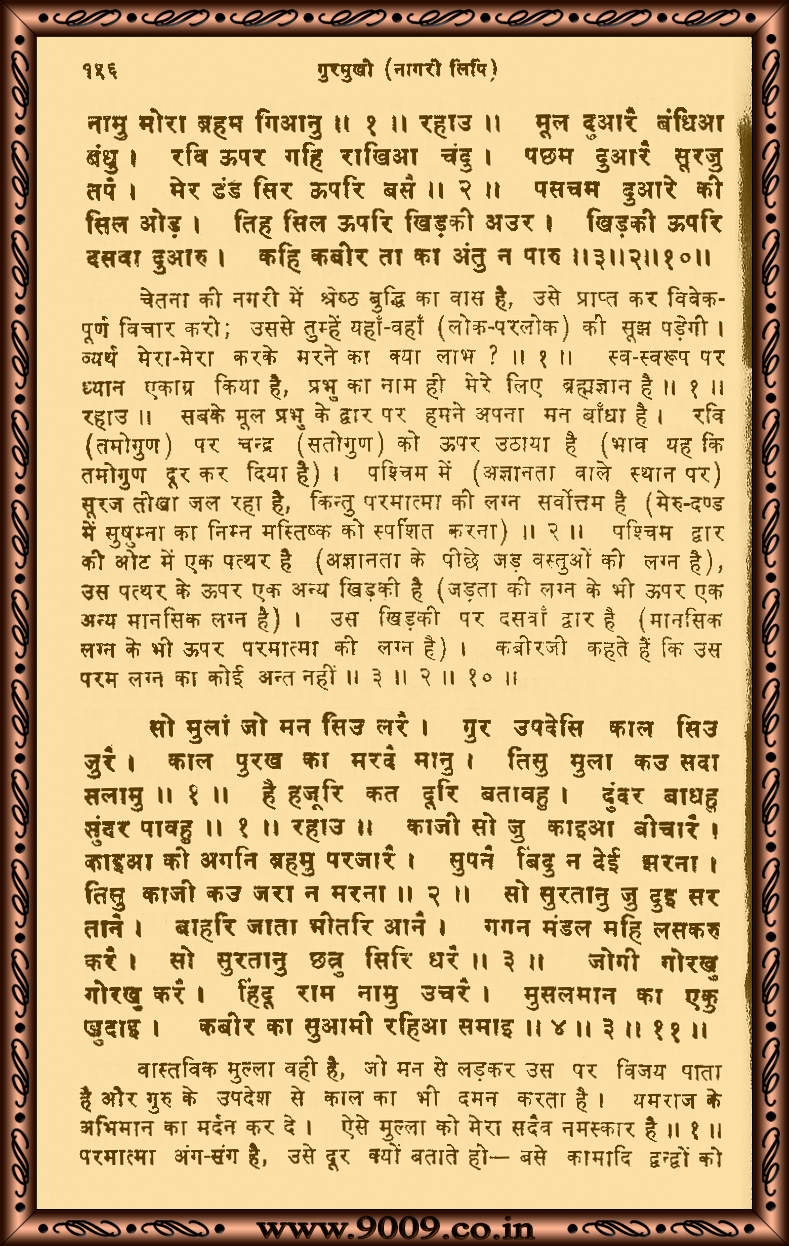 १५६ गुरमुखी (नागरी लिपि)
नामु मोरा ब्रहम गिआनु ॥ १ ॥ रहाउ ॥ मूल दुआरै बंधिआ
बंधु । रवि ऊपर गहि राखिआ चंदु । पछम दुआरै सूरजु
तपै । मेर डंड सिर ऊपरि बसै ॥ २ ॥ पसचम दुआरे की
सिल ओड़ । तिह सिल ऊपरि खिड़की अउर । खिड़की ऊपरि
दसवा दुआरु । कहि कबीर ता का अंतु न पारु ॥३॥२॥१०॥
चेतना की नगरी में श्रेष्ठ बुद्धि का वास है, उसे प्राप्त कर विवेक-
पूर्ण विचार करो; उससे तुम्हें यहाँ-वहाँ (लोक-परलोक) की सूझ पड़ेगी ।
व्यर्थ मेरा-मेरा करके मरने का क्या लाभ ? ॥ १ ॥ स्व-स्वरूप पर
ध्यान एकाग्र किया है, प्रभु का नाम ही मेरे लिए ब्रह्मज्ञान है ॥ १ ॥
रहाउ ॥ सबके मूल प्रभु के द्वार पर हमने अपना मन बाँधा है । रवि
(तमोगुण) पर चन्द्र (सतोगुण) को ऊपर उठाया है (भाव यह कि
तमोगुण दूर कर दिया है) । पश्चिम में (अज्ञानता वाले स्थान पर)
सूरज तीखा जल रहा है, किन्तु परमात्मा की लग्न सर्वोत्तम है (मेरु-दण्ड
में सुषुम्ना का निम्न मस्तिष्क को स्पर्शित करना) ॥ २ ॥ पश्चिम द्वार
की ओट में एक पत्थर है (अज्ञानता के पीछे जड़ वस्तुओं की लग्न है),
उस पत्थर के ऊपर एक अन्य खिड़की है (जड़ता की लग्न के भी ऊपर एक
अन्य मानसिक लग्न है) । उस खिड़की पर दसवाँ द्वार है (मानसिक
लग्न के भी ऊपर परमात्मा की लग्न है) । कबीरजी कहते हैं कि उस
परम लग्न का कोई अन्त नहीं ॥ ३ ॥ २ ॥ १० ॥
सो मुलां जो मन सिउ लरै । गुर उपदेसि काल सिउ
जुरै । काल पुरख का मरदै मानु । तिसु मुला कउ सदा
सलामु ॥ १ ॥ है हजूरि कत दूरि बतावहु । दुंदर बाधहु
सुंदर पावहु ॥ १ ॥ रहाउ ॥ काजी सो जु काइआ बीचारै ।
काइआ की अगनि ब्रहमु परजारै । सुपनै बिंदु न देई झरना ।
तिसु काजी कउ जरा न मरना ॥ २ ॥ सो सुरतानु जु दुइ सर
तानै । बाहरि जाता भीतरि आनै । गगन मंडल महि लसकरु
करै । सो सुरतानु छत्रु सिरि धरै ॥ ३ ॥ जोगी गोरखु
गोरखु करै । हिंदू राम नामु उचरै । मुसलमान का एकु
खुदाइ । कबीर का सुआमी रहिआ समाइ ॥ ४ ॥ ३ ॥ ११ ॥
वास्तविक मुल्ला वही है, जो मन से लड़कर उस पर विजय पाता
है और गुरु के उपदेश से काल का भी दमन करता है । यमराज के
अभिमान का मर्दन कर दे । ऐसे मुल्ला को मेरा सदैव नमस्कार है ॥ १ ॥
परमात्मा अंग-संग है, उसे दूर क्यों बताते हो— बसे कामादि द्वन्द्वों को
www.9009.co.in